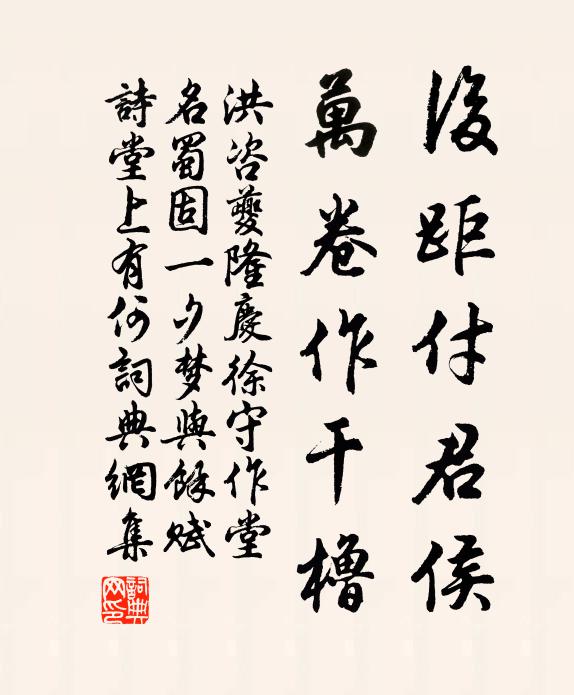 後距付君侯
萬卷作干櫓
洪咨夔隆慶徐守作堂
名蜀固一夕梦與餘賦
詩堂上有何詞典網集
詞典
网印